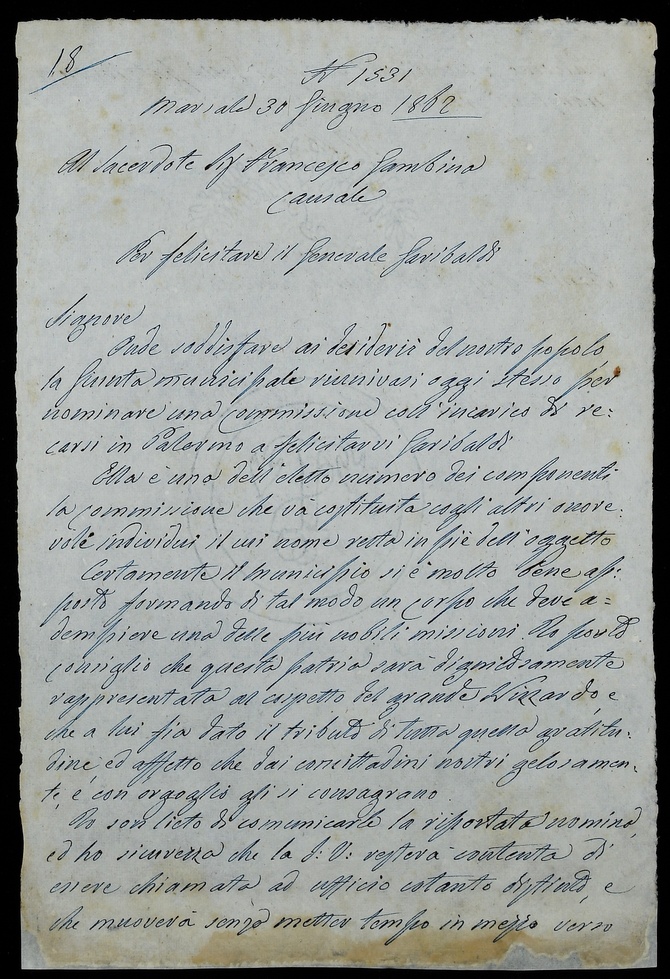 18
N 1531
Marsala 30 Giugno 1862
Al Sacerdote Sig Francesco Gambina
Causale
Per felicitare il Generale Garibaldi
Signore
Onde soddisfare ai desiderii del nostro popolo
la Giunta municipale riunivasi oggi stesso per
nominare una Commissione coll'incarico di re=
carsi in Palermo a felicitarvi Garibaldi
Ella è uno dell'eletto numero dei componenti
la Commissione che và costituita cogli altri onore=
voli individui il cui nome resta in piè dell'oggetto
Certamente il Municipio si è molto bene ap=
posto formando di tal modo un corpo che deve a=
dempiere una delle più nobili missioni. Ho
consiglio che questa patria sarà dignitosamente
rappresentata al cospetto del grande Nizzardo e
che a lui fia dato il tributo di tutta quella gratitu=
dine ed affetto che dai concittadini nostri gelosamen=
te, e con orgoglio gli si consagrano
Io son lieto di comunicarle la riportata nomina,
ed ho sicurezza che la S: V: resterà contenta di
essere chiamata ad ufficio cotanto distinto, e
che muoverà senza metter tempo in mezzo verso